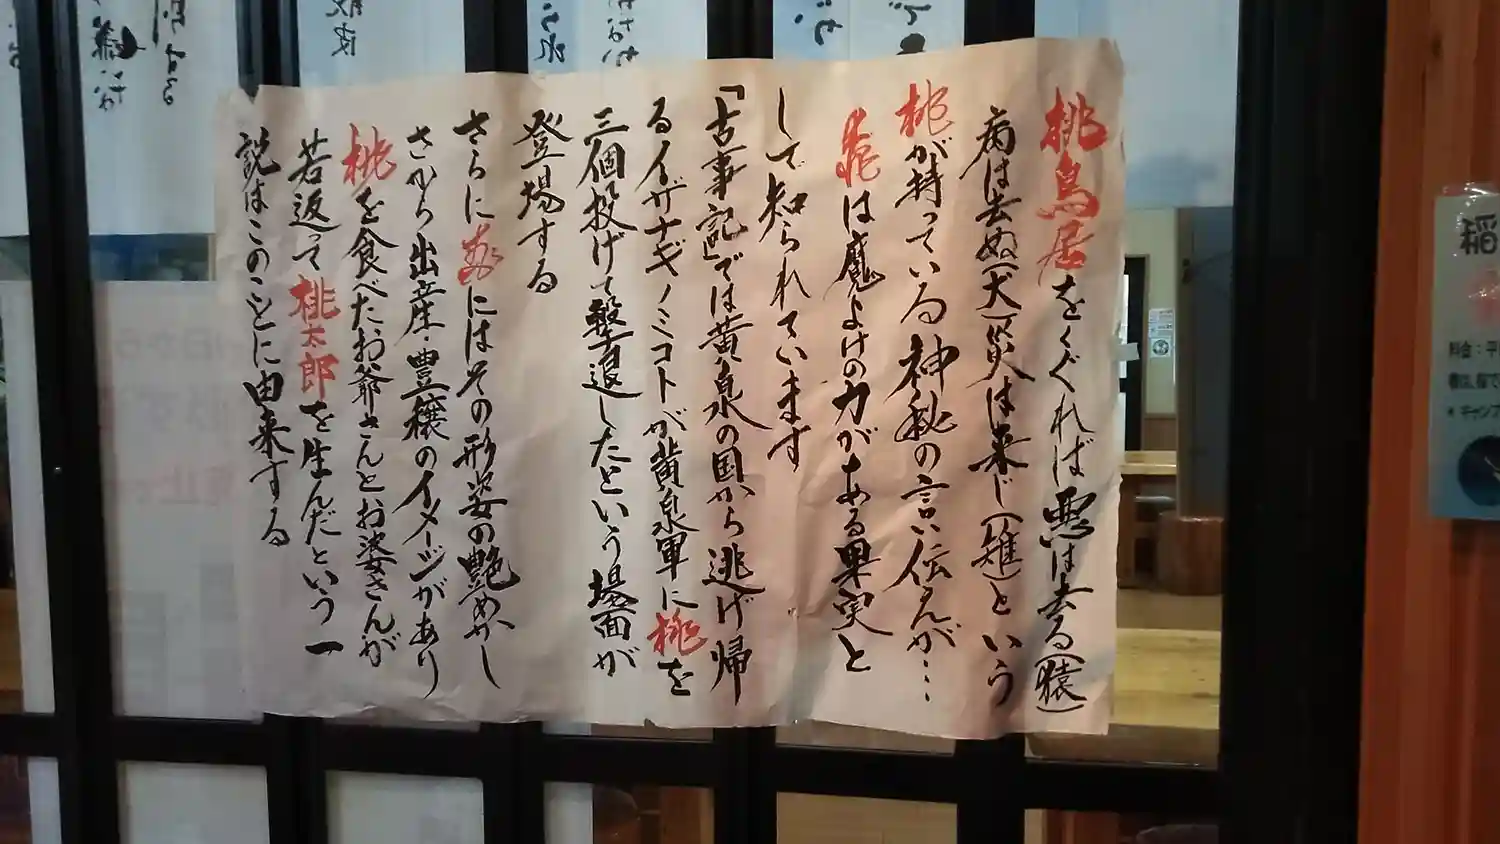 桃鳥居をくぐれば悪は去る(猿)
病は去ぬ(犬)災は来じ(雉)という
桃が持っている神秘の言い伝えが…
桃は魔よけの力がある果実と
して知られています
「古事記」では黄泉の国から逃げ帰
るイザナギノミコトが黄泉軍に桃を
三個投げて撃退したという場面が
登場する
さらに桃にはその形姿の艶めかし
さから出産・豊穣のイメージがあり
桃を食べたお爺さんとお婆さんが
若返って桃太郎を生んだという一
説はこのことに由来する
稲
料金：平